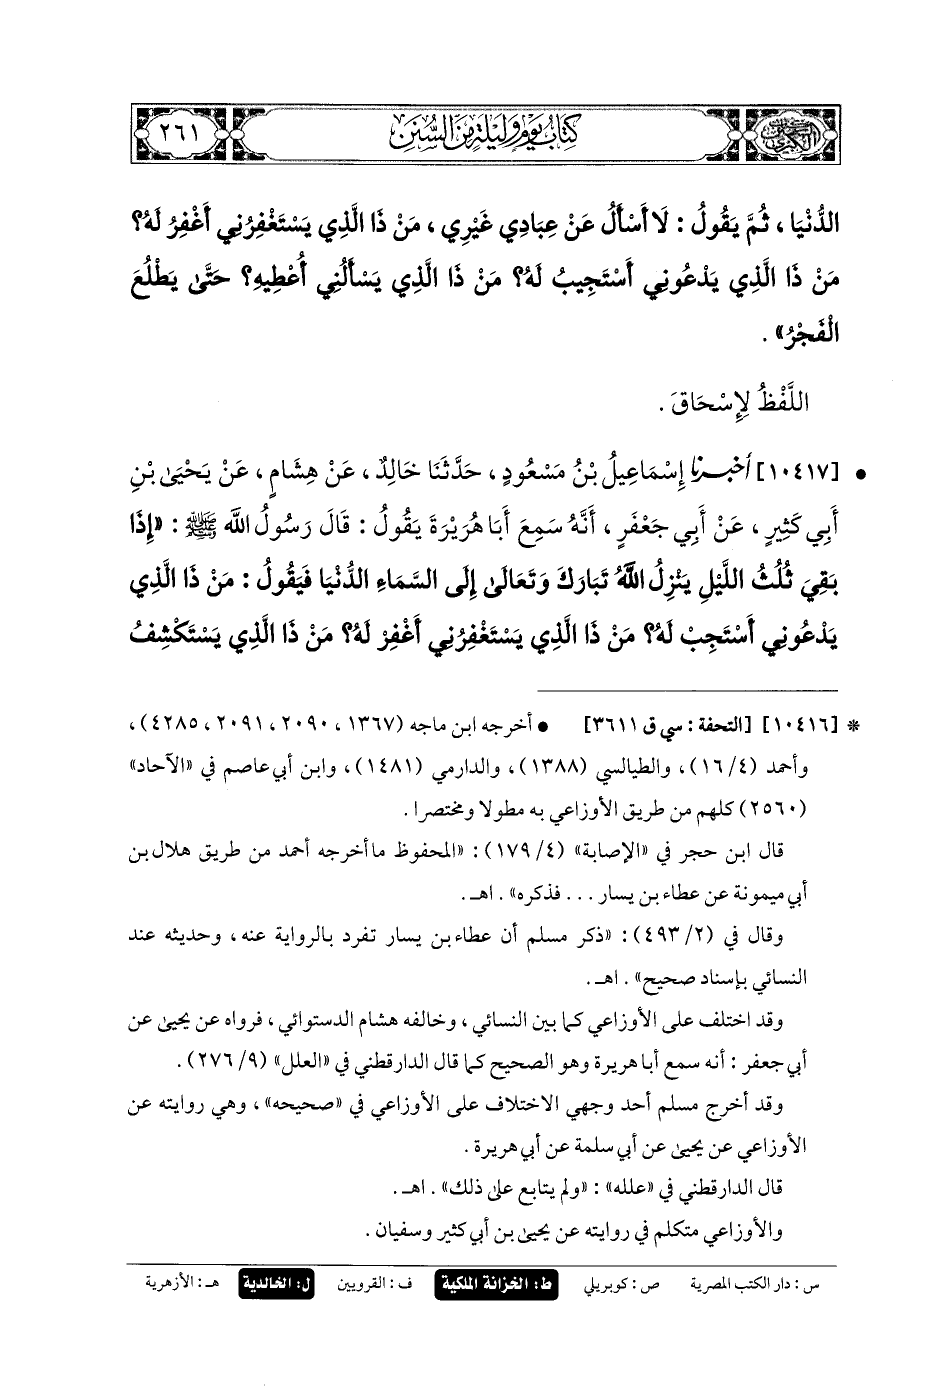 السنن الكبرى
كتاب يوم وليلة من السنن
٢٦١
الدُّنْيَا ، ثُمَّ يَقُولُ : لَا أَسْأَلُ عَنْ عِبَادِي غَيْرِي ، مَنْ ذَا الَّذِي يَسْتَغْفِرُنِي أَغْفِرُ لَهُ؟
مَنْ ذَا الَّذِي يَدْعُونِي أَسْتَجِيبُ لَهُ؟ مَنْ ذَا الَّذِي يَسْأَلُنِي أُعْطِيهِ؟ حَتَّى يَطْلُعَ
الْفَجْرُ» .
اللَّفْظُ لِإِسْحَاقَ .
• [١٠٤١٧] أخبرنا إِسْمَاعِيلُ بْنُ مَسْعُودٍ ، حَدَّثَنَا خَالِدٌ ، عَنْ هِشَامٍ ، عَنْ يَحْيَى بْنِ
أَبِي كَثِيرٍ ، عَنْ أَبِي جَعْفَرٍ ، أَنَّهُ سَمِعَ أَبَا هُرَيْرَةَ يَقُولُ : قَالَ رَسُولُ اللَّه ﷺ : «إِذَا
بَقِيَ ثُلُثُ اللَّيْلِ يَنْزِلُ اللَّهُ تَبَارَكَ وَتَعَالَى إِلَى السَّمَاءِ الدُّنْيَا فَيَقُولُ : مَنْ ذَا الَّذِي
يَدْعُونِي أَسْتَجِبْ لَهُ؟ مَنْ ذَا الَّذِي يَسْتَغْفِرُنِي أَغْفِرْ لَهُ؟ مَنْ ذَا الَّذِي يَسْتَكْشِفُ
* [١٠٤١٦] [التحفة : سي ق ٣٦١١] • أخرجه ابن ماجه (١٣٦٧ ، ٢٠٩٠ ، ٢٠٩١ ، ٤٢٨٥) ،
وأحمد (٤/ ١٦) ، والطيالسي (١٣٨٨) ، والدارمي (١٤٨١) ، وابن أبي عاصم في «الآحاد»
(٢٥٦٠) كلهم من طريق الأوزاعي به مطولا ومختصرا .
قال ابن حجر في «الإصابة» (٤/ ١٧٩) : «المحفوظ ما أخرجه أحمد من طريق هلال بن
أبي ميمونة عن عطاء بن يسار . . . فذكره» . اهـ .
وقال في (٢/ ٤٩٣) : «ذكر مسلم أن عطاء بن يسار تفرد بالرواية عنه ، وحديثه عند
النسائي بإسناد صحيح» . اهـ .
وقد اختلف على الأوزاعي كما بين النسائي ، وخالفه هشام الدستوائي ، فرواه عن يحيى عن
أبي جعفر : أنه سمع أبا هريرة وهو الصحيح كما قال الدارقطني في «العلل» (٩/ ٢٧٦) .
وقد أخرج مسلم أحد وجهي الاختلاف على الأوزاعي في «صحيحه» ، وهي روايته عن
الأوزاعي عن يحيى عن أبي سلمة عن أبي هريرة .
قال الدارقطني في «علله» : «ولم يتابع على ذلك» . اهـ .
والأوزاعي متكلم في روايته عن يحيى بن أبي كثير وسفيان .
س : دار الكتب المصرية ص : كوبريلي ط : الخزانة الملكية ف : القرويين ل : الخالدية هـ : الأزهرية